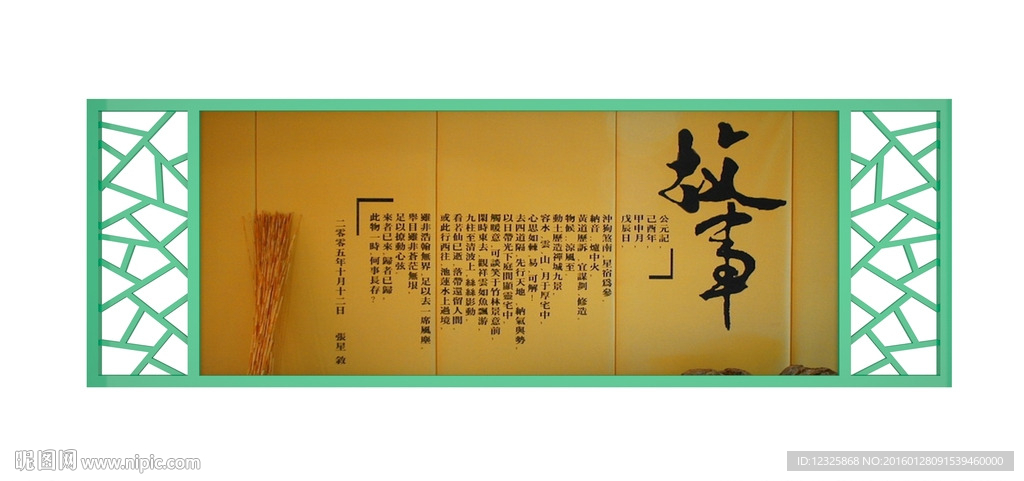 故事
公元記，
己酉年，
甲申月，
戊辰日，
沖狗煞南，星宿爲參，
納音：爐中火，
黃道歷訴，宜謀劃，修造，
物候：涼風至，
動土歷造禪城九景，
容水、雲、山、月于厚宅中，
心思如棘，易，可解！
去四道隔，先行天地，納氣與勢，
以日帶光下庭間顯靈宅中，
觸暖意，可談笑于竹林景意前，
閑時東去，觀祥雲如魚飄游，
九柱至清波上，絲絲影動，
看若仙已逝，落帶還留人間，
或此行西往，池蓮水上過境，
雖非浩瀚無界，足以去一席風塵，
舉目雖非蒼茫無垠，
足以撩動心弦，
來者已來，歸者已歸，
此物一時，何事長存？
二零零五年十月十二日 張星 敦
昵图网 www.nipic.com
ID:12325868 NO:20160128091539460000